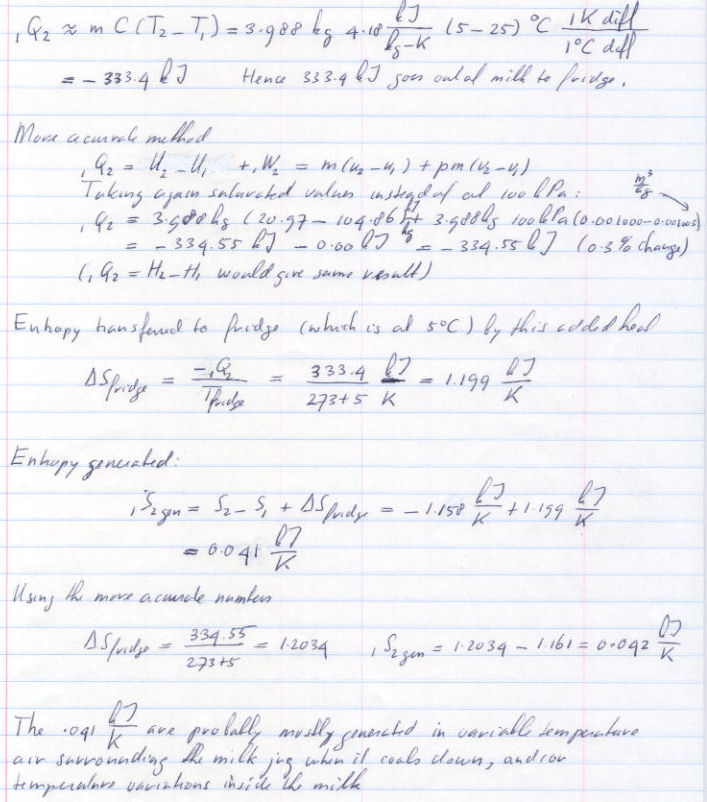 ₁Q₂ ≈ m C (T₂ – T₁) = 3.988 kg 4.18 kJ/kg–K (5 – 25) °C 1K diff/1°C diff
= – 333.4 kJ Hence 333.4 kJ goes out of milk to fridge.
More accurate method
₁Q₂ = U₂ – U₁ + ₁W₂ = m(u₂ – u₁) + pm(v₂ – v₁)
Taking again saturated values instead of at 100 kPa: m³/kg
₁Q₂ = 3.988 kg (20.97 – 104.86) kJ/kg + 3.988 kg 100 kPa (0.001000–0.001003)
= – 334.55 kJ – 0.00 kJ = – 334.55 kJ (0.3 % change)
(₁Q₂ = H₂ – H₁ would give same result)
Entropy transferred to fridge (which is at 5°C) by this added heat
ΔSfridge = –₁Q₂/Tfridge = 333.4/273+5 kJ/K = 1.199 kJ/K
Entropy generated:
₁S₂gen = S₂ – S₁ + ΔSfridge = – 1.158 kJ/K + 1.199 kJ/K
= 0.041 kJ/K
Using the more accurate numbers
ΔSfridge = 334.55/273+5 = 1.2034 ₁S₂gen = 1.2034 – 1.161 = 0.042 kJ/K
The .041 kJ/K are probably mostly generated in variable temperature
air surrounding the milk jug when it cools down, and/or
temperature variations inside the milk